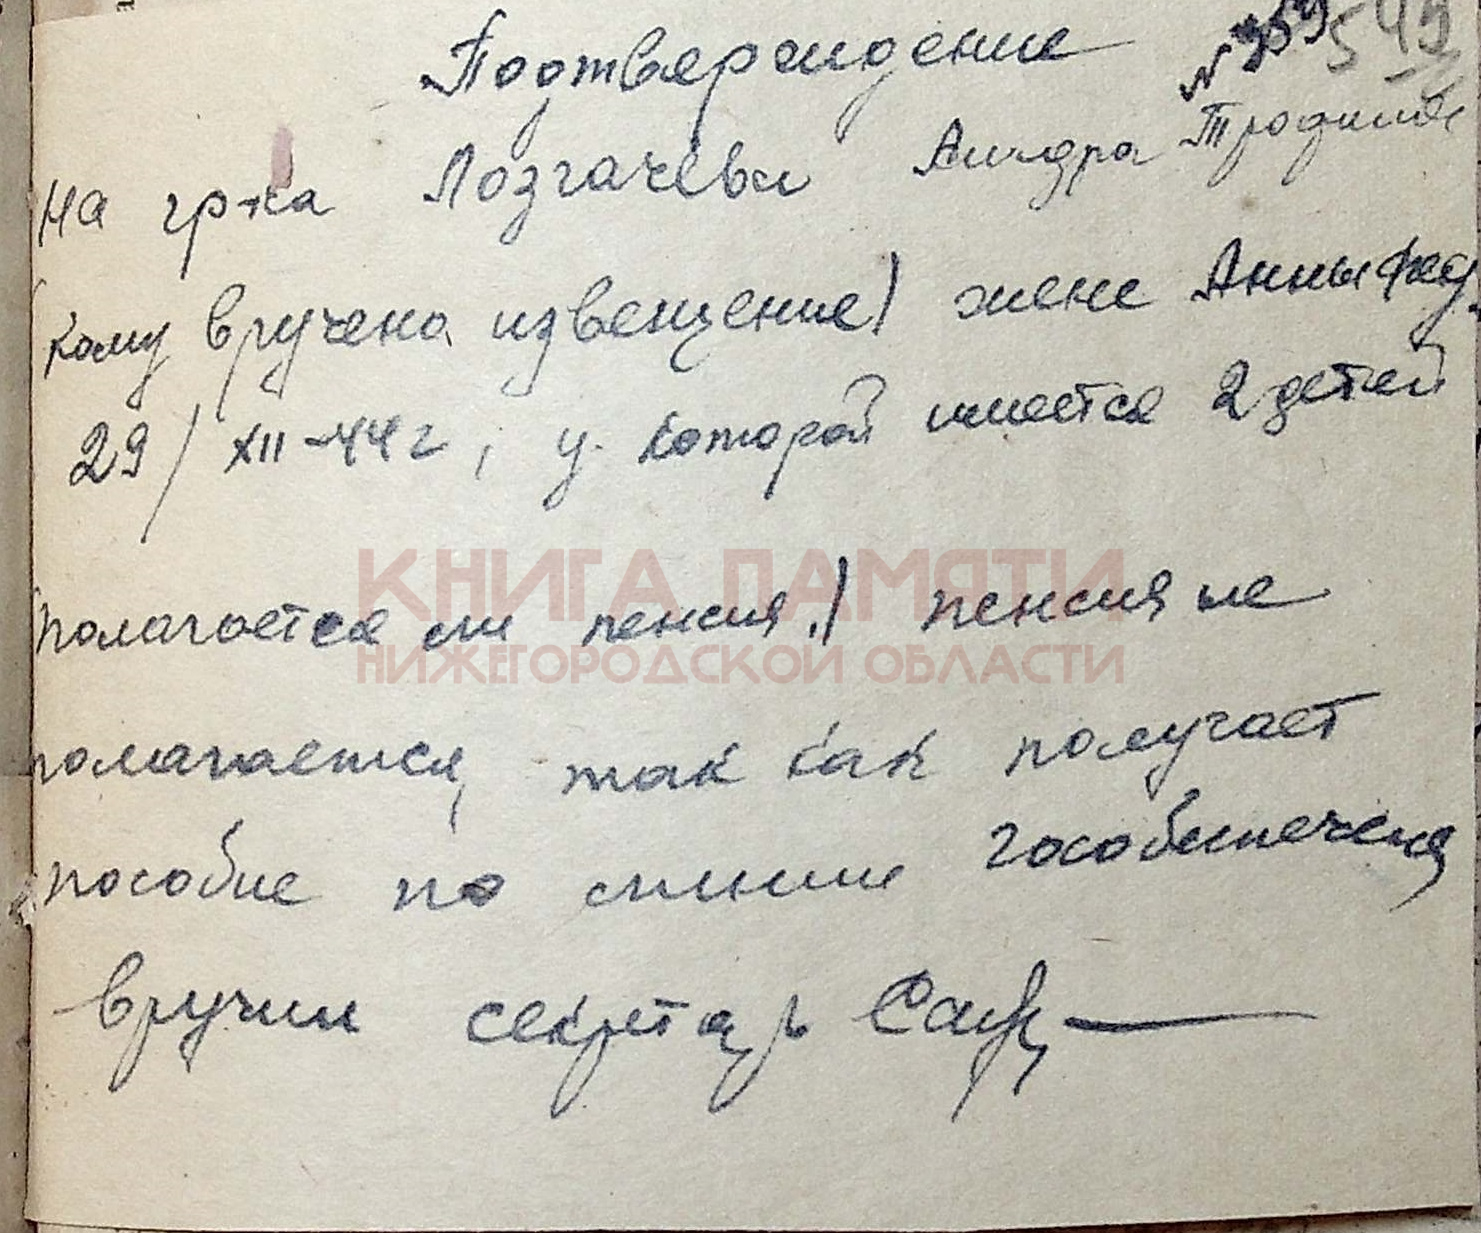 Подтверждение №359 549
На гр-ка Лозгачева Андра Трофимов
кому вручено извещение) жене Анны Фед.
29/XII-44г, у которой имеется 2 детей
КНИГА ПАМЯТИ
полагается ли пенсия.) пенсия не
НИЖЕГОРОДСКОЙ ОБЛАСТИ
полагается, так как получает
пособие по линии гособеспечения
Вручил секретарь